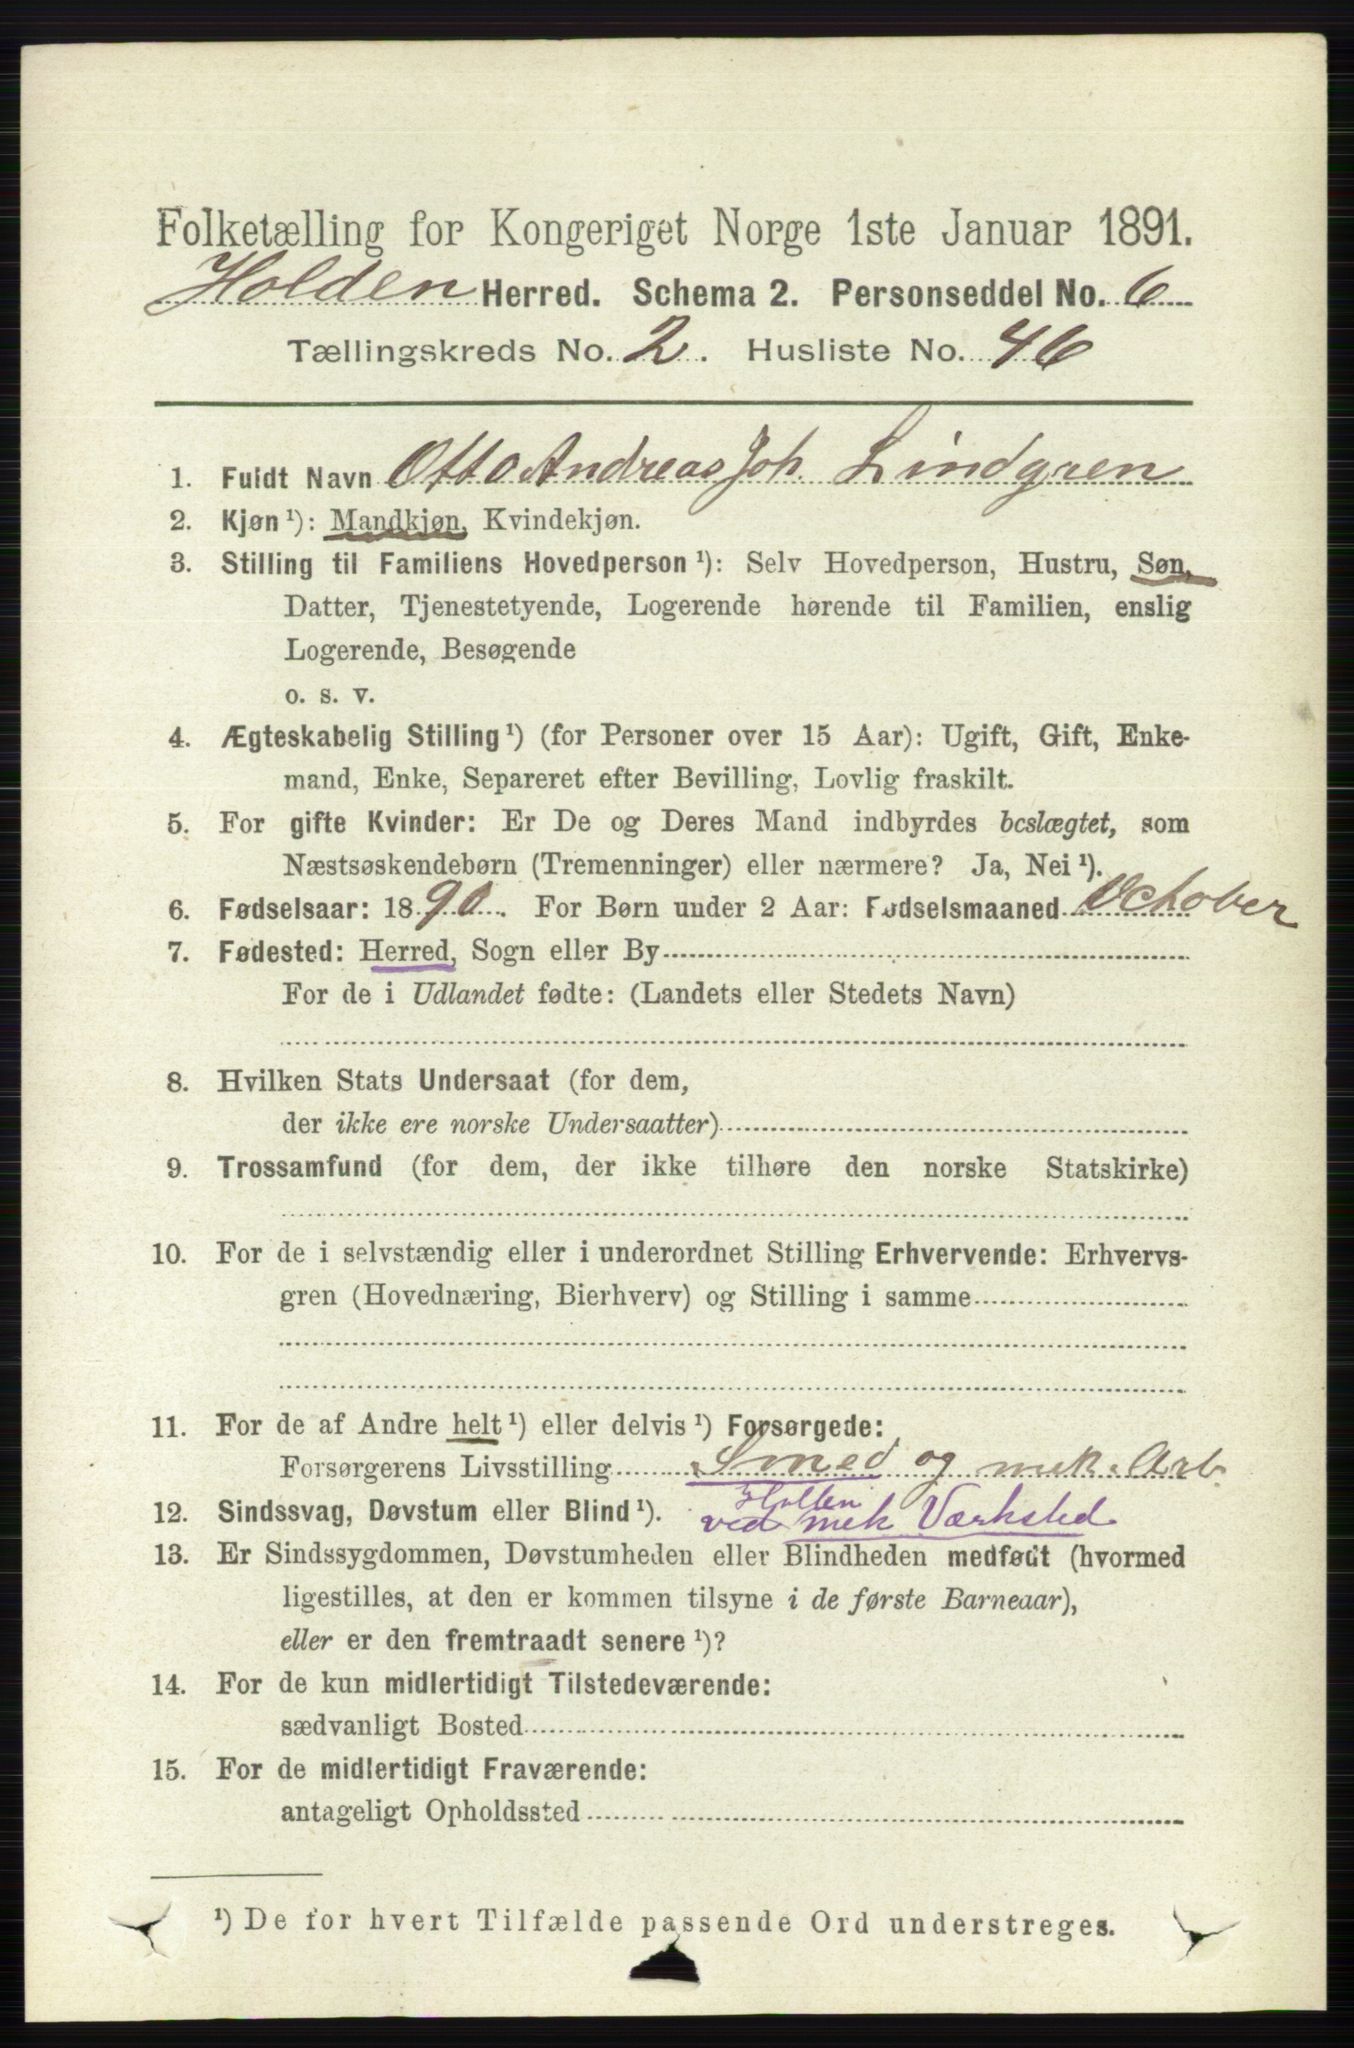 Folketælling for Kongeriget Norge 1ste Januar 1891.
Holden Herred. Schema 2. Personseddel No. 6
Tællingskreds No. 2. Husliste No. 46
1. Fuldt Navn Otto Andreas Joh. Lindgren
2. Kjøn ¹): Mandkjøn, Kvindekjøn.
3. Stilling til Familiens Hovedperson ¹): Selv Hovedperson, Hustru, Søn,
Datter, Tjenestetyende, Logerende hørende til Familien, enslig
Logerende, Besøgende
o. s. v.
4. Ægteskabelig Stilling ¹) (for Personer over 15 Aar): Ugift, Gift, Enke-
mand, Enke, Separeret efter Bevilling, Lovlig fraskilt.
5. For gifte Kvinder: Er De og Deres Mand indbyrdes beslægtet, som
Næstsøskendebørn (Tremenninger) eller nærmere? Ja, Nei ¹).
6. Fødselsaar: 1890. For Børn under 2 Aar: Fødselsmaaned October
7. Fødested: Herred, Sogn eller By
For de i Udlandet fødte: (Landets eller Stedets Navn)
8. Hvilken Stats Undersaat (for dem,
der ikke ere norske Undersaatter)
9. Trossamfund (for dem, der ikke tilhøre den norske Statskirke)
10. For de i selvstændig eller i underordnet Stilling Erhvervende: Erhvervs-
gren (Hovednæring, Bierhverv) og Stilling i samme
11. For de af Andre helt ¹) eller delvis ¹) Forsørgede:
Forsørgerens Livsstilling Smed og mek. Arb.
Hollen
12. Sindssvag, Døvstum eller Blind ¹). ved mek Værksted
13. Er Sindssygdommen, Døvstumheden eller Blindheden medfødt (hvormed
ligestilles, at den er kommen tilsyne i de første Barneaar),
eller er den fremtraadt senere ¹)?
14. For de kun midlertidigt Tilstedeværende:
sædvanligt Bosted
15. For de midlertidigt Fraværende:
antageligt Opholdssted
¹) De for hvert Tilfælde passende Ord understreges.